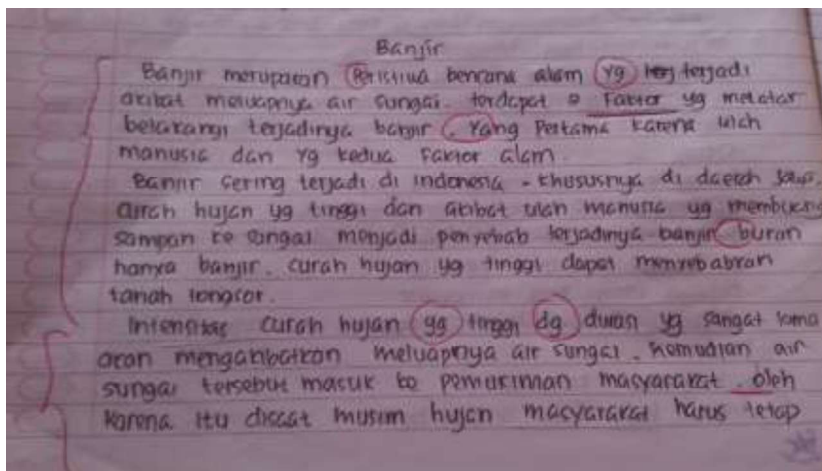 Banjir
Banjir merupakan Peristiwa bencana alam yg terjadi
akibat meluapnya air sungai. terdapat 2 Faktor yg melatar
belakangi terjadinya banjir. Yang Pertama karena ulah
manusia dan yg kedua Faktor alam.
Banjir sering terjadi di indonesia. khususnya di daerah
curah hujan yg tinggi dan akibat ulah manusia yg membuang
sampah ke sungai menjadi penyebab terjadinya banjir bukan
hanya banjir. curah hujan yg tinggi dapat menyebabkan
tanah longsor.
Intensitas curah hujan yg tinggi dg durasi yg sangat lama
akan mengakibatkan meluapnya air sungai. kemudian air
sungai tersebut masuk ke pemukiman masyarakat. oleh
karena itu disaat musim hujan masyarakat harus tetap